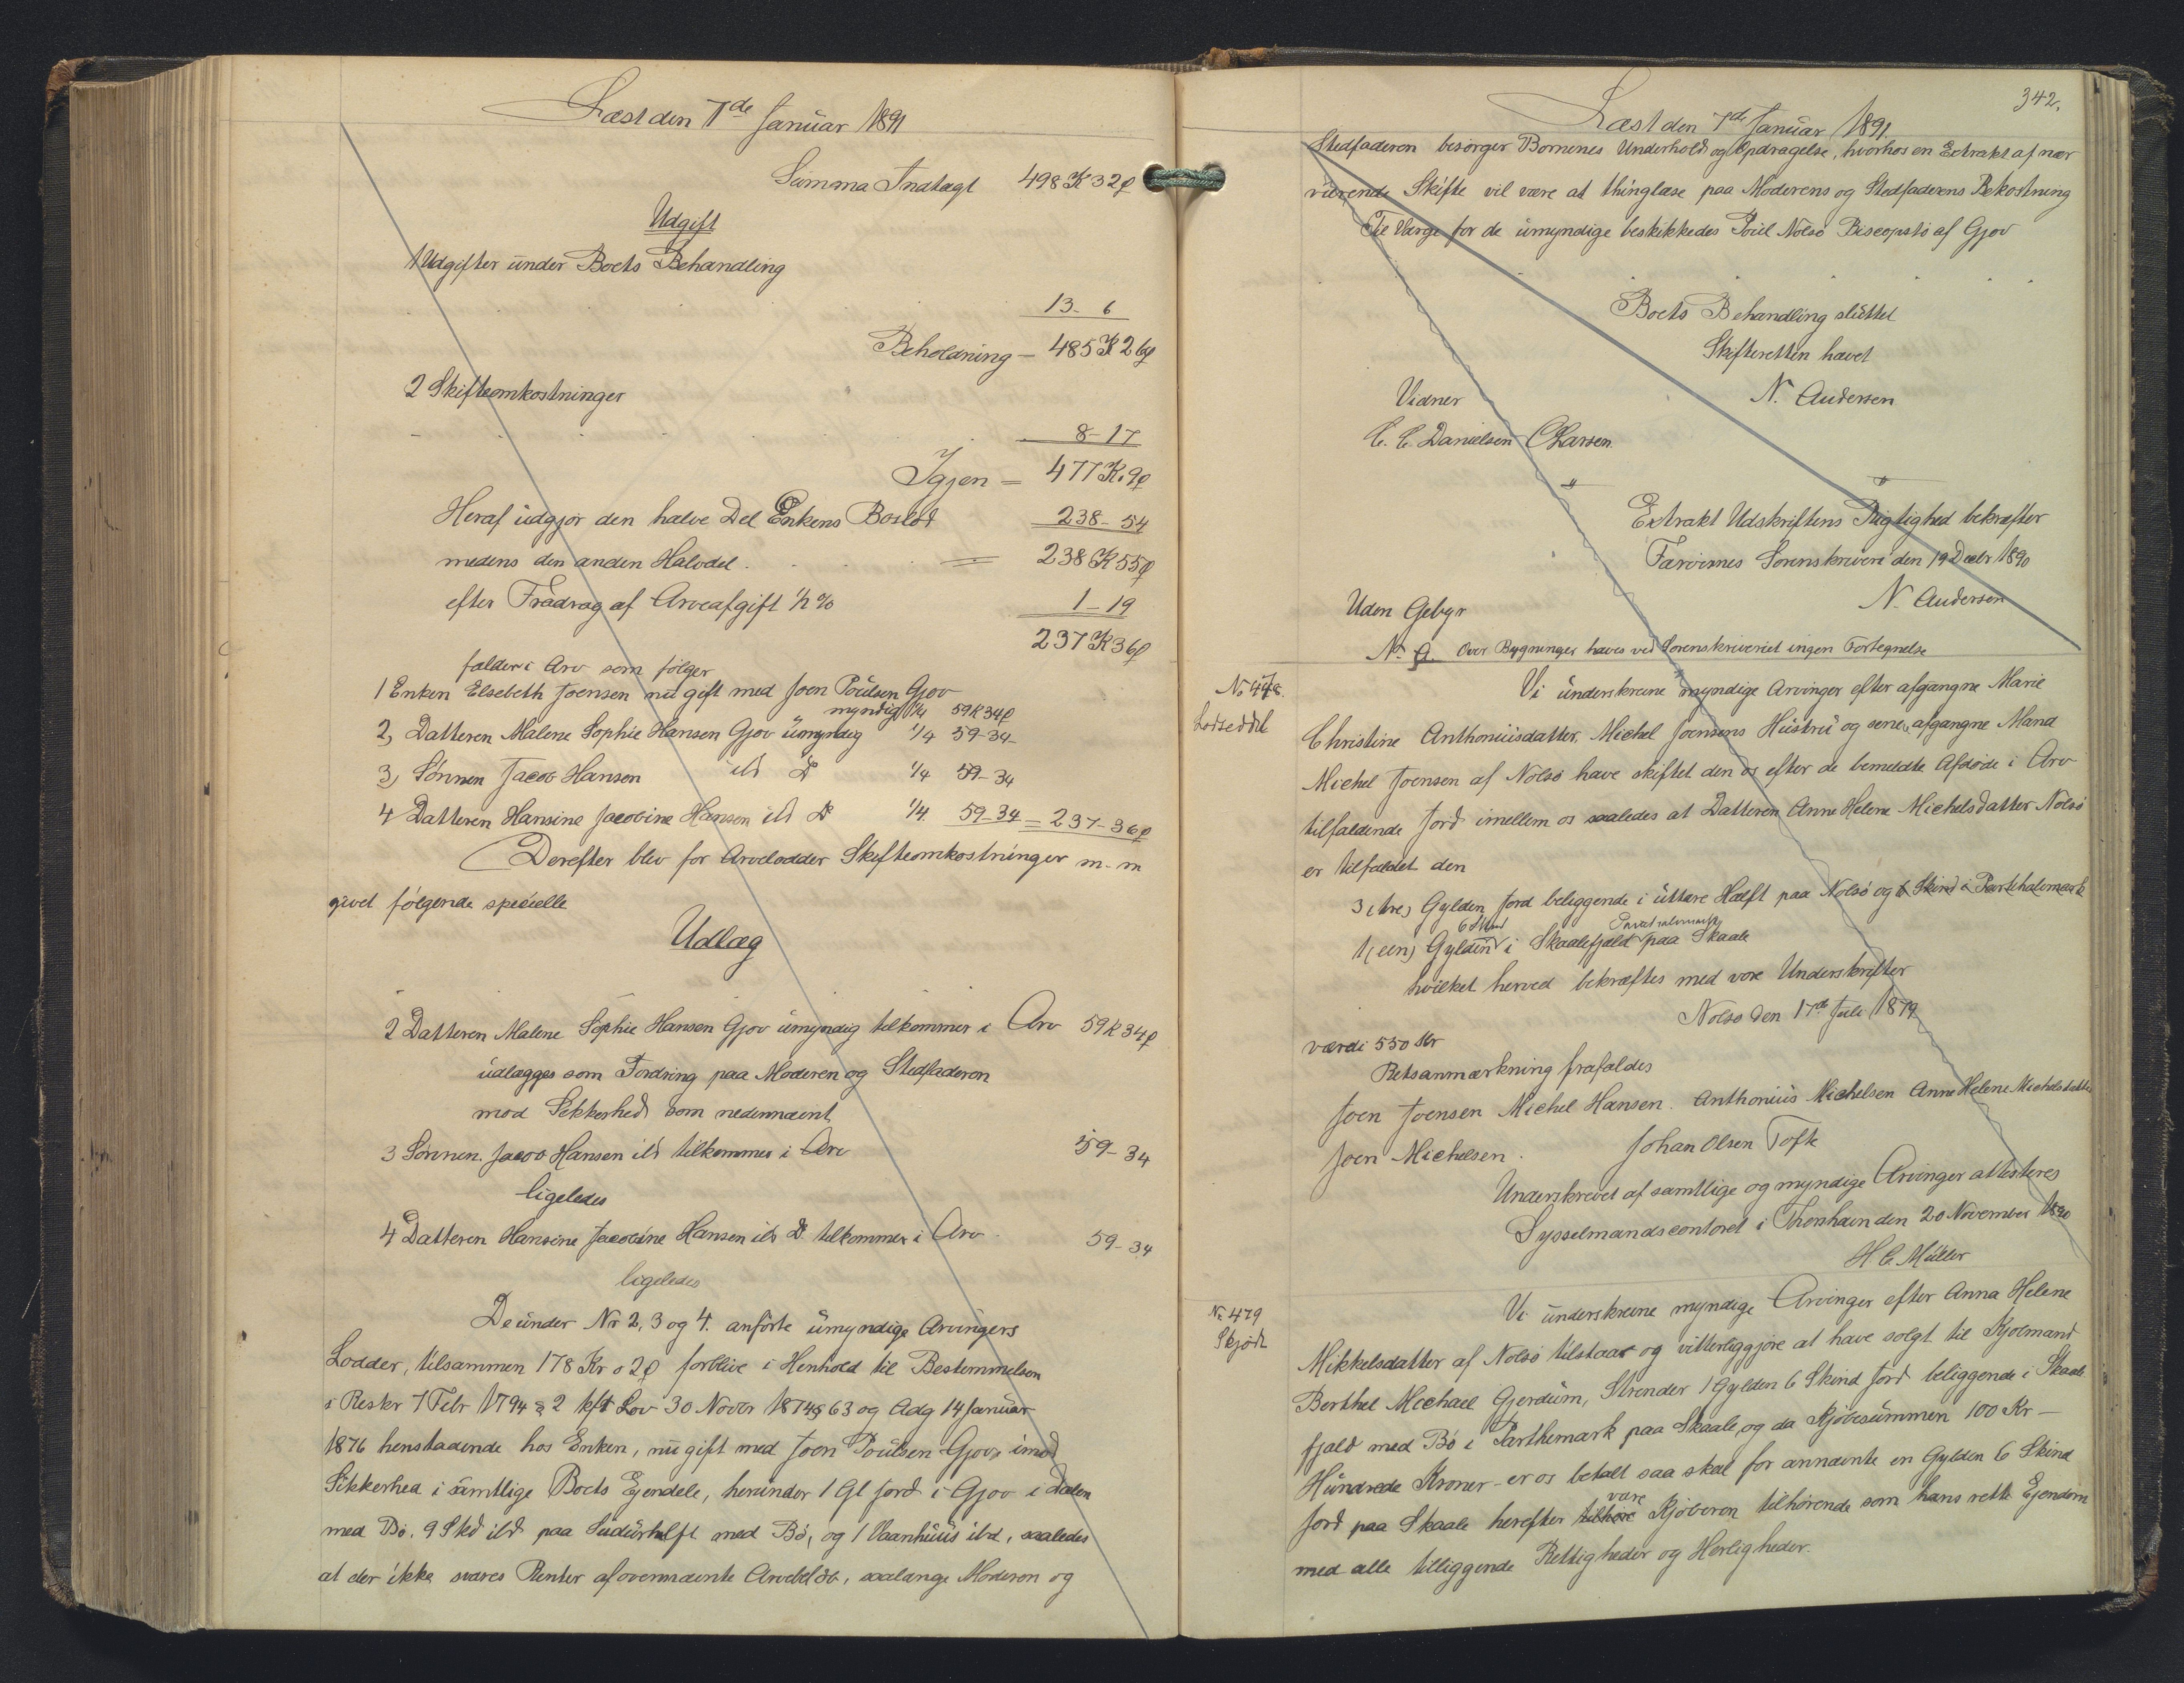 Læst den 7de Januar 1891
Summa Indtægt 498 K 32 ø
Udgift
1 Udgifter under Boets Behandling
13- 6
Beholdning - 485 K 26 ø
2 Skifteomkostninger
8-17
Igjen = 477 K. 9 ø
Heraf udgjør den halve Del Enkens Boslod 238-54
medens den anden Halvdel = 238 K 55 ø
efter Fradrag af Arveafgift ½ % 1-19
237 K 36 ø
falder i Arv som følger
1 Enken Elsebeth Joensen nu gift med Joen Poulsen Gjov
myndig ¼ 59 K 34 ø
2, Datteren Malene Sophie Hansen Gjov umyndig ¼ 59-34-
3, Sønnen Jacob Hansen ibd D ¼ 59-34
4 Datteren Hansine Jacobine Hansen ibd D ¼ 59-34 = 237-36 ø
Derefter blev for Arvelodder Skifteomkostninger m-m
givet følgende specielle
Udlæg
2 Datteren Malene Sophie Hansen Gjov umyndig tilkommer i Arv 59 K 34 ø
udlægges som Fordring paa Moderen og Stedfaderen
mod Sikkerhed som nedennævnt
3 Sønnen Jacob Hansen ibd tilkommer i Arv 59-34
ligeledes
4 Datteren Hansine Jacobine Hansen ibd D. tilkommer i Arv 59-34
ligeledes
De under Nr 2, 3 og 4. anførte umyndige Arvingers
Lodder, tilsammen 178 Kr 02 ø forblive i Henhold til Bestemmelsen
i Reskr 7 Febr 1794 § 2 kft Lov 30 Novbr 1874 § 63 og Adg 14 Januar
1876 henstaaende hos Enken, nu gift med Joen Poulsen Gjov, imod
Sikkerhed i samtlige Boets Ejendele, herunder 1 Gl Jord i Gjov i Dalen
med Bø, 9 Skd ibd paa Sudurhalft med Bø, og 1 Vaanhuus ibd, saaledes
at der ikke svares Renter af ovennævnte Arvebeløb, saalænge Moderen og
342.
Læst den 7de Januar 1891.
Stedfaderen besørger Børnenes Underhold og Opdragelse, hvorhos en Extrakt af nær
værende Skifte vil være at thinglæse paa Moderens og Stedfaderens Bekostning
Til Værge for de umyndige beskikkedes Poul Nolsø Biscopstø af Gjov
Boets Behandling sluttet
Skifteretten hævet
Vidner N. Andersen
C. C. Danielsen C Larsen.
Extrakt Udskriftens Rigtighed bekræfter
Færøernes Sorenskriveri den 19 Decbr 1890
Uden Gebyr N. Andersen
N. A. Over Bygninger haves ved Sorenskriveriet ingen Fortegnelse
No 478. Vi underskrevne myndige Arvinger efter afgangne Marie
Lodseddel Christine Anthoniusdatter, Michel Joensens Hustru og senere afgangne Mand
Michel Joensen af Nolsø have skiftet den os efter de bemeldte Afdøde i Arv
tilfaldende Jord imellem os saaledes at Datteren Anne Helene Michelsdatter Nolsø
er tilfaldet den
3 (tre) Gylden Jord beliggende i uttare Halft paa Nolsø og 6 Skind i Partehalvmark
6 Skind
1 (een) Gylden i Skaalefjeld paa Skaale
hvilket herved bekræftes med vore Underskrifter
Nolsø den 17de Juli 1879
værdi 550 Kr
Retsanmærkning frafaldes
Joen Joensen Michel Hansen. Anthonius Michelsen Anne Helene Michelsdatter
Joen Michelsen. Johan Olsen Tofte
Underskrevet af samtlige og myndige Arvinger attesteres
Sysselmandscontoret i Thorshavn den 20 November 1890
H C. Müller
No 479 Vi underskrevne myndige Arvinger efter Anna Helene
Skjøde Mikkelsdatter af Nolsø tilstaar og vitterliggjøre at have solgt til Kjøbmand
Berthel Michael Gjerdum, Strender 1 Gylden 6 Skind Jord beliggende i Skaale
fjeld med Bø i Parthemark paa Skaale, og da Kjøbesummen 100 Kr —
Hundrede Kroner - er os betalt saa skal for annævnte en Gylden 6 Skind
være
Jord paa Skaale herefter tilhøre Kjøberen tilhørende som hans rette Ejendom
med alle tilliggende Rettigheder og Herligheder.